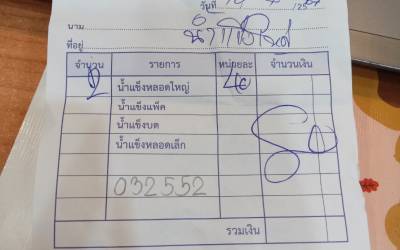 วันที่ /25
นาม
ที่อยู่
จำนวน รายการ หน่วยละ จำนวนเงิน
2 น้ำแข็งหลอดใหญ่ 40
น้ำแข็งแพ็ค
น้ำแข็งบด
น้ำแข็งหลอดเล็ก
80
032552
รวมเงิน